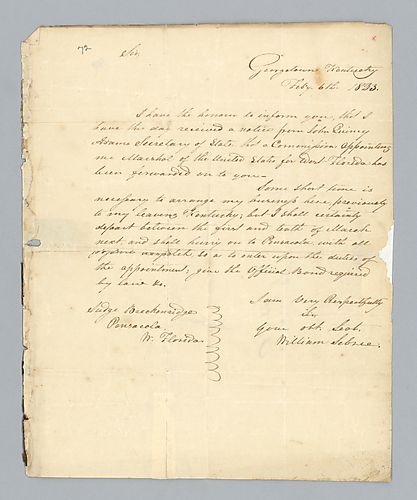 72
Sir,
Georgetown Kentucky
Feby. 6th. 1823.
I have the honour to inform you, that I
have this day received a notice from John Quincy
Adams Secretary of State that a Commission appointing
me Marshal of the United States for West Florida has
been forwarded on to you—
Some short time is
necessary to arrange my business here, previously
to my leaving Kentucky, but I shall certainly
depart between the first and tenth of March
next, and shall hurry on to Pensacola with all
possible so as to enter upon the duties of
the appointment, give the Official Bond required
by law &c.
I am Very Respectfully
Sir
Your obt. Sevt.
William Sebree.
Judge Breckenridge
Pensacola
W. Florida